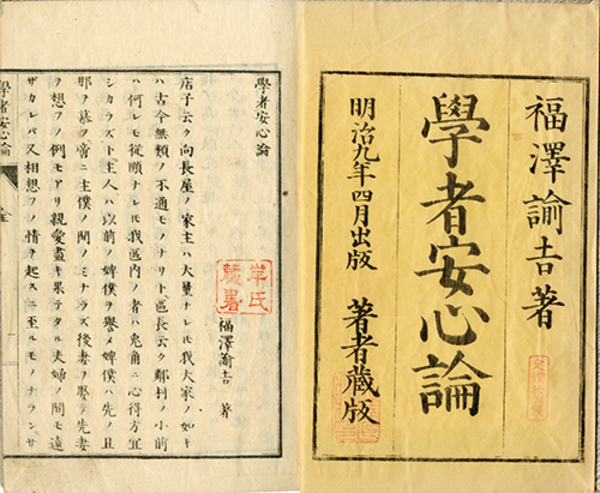 福澤諭吉著
學者安心論
明治九年四月出版 著者藏版
學者安心論
福澤諭吉 著
岸氏
藏書
店子云ク向長屋ノ家主ハ大量ナレ𪜈我大家ノ如キ
ハ古今無類ノ不通モノナリト區長云ク鄰村ノ小前
ハ何レモ從順ナレ𪜈我區内ノ者ハ兎角ニ心得方宜
シカラズト主人ハ以前ノ婢僕ヲ譽メ婢僕ハ先ノ且
那ヲ慕フ啻ニ主僕ノ間ノミナラズ後妻ヲ娶テ先妻
ヲ想フノ例モアリ親愛盡キ果テタル夫婦ノ間モ遠
ザカレバ又相想フノ情ヲ起スニ至ルモノナランサ
學者安心論
全